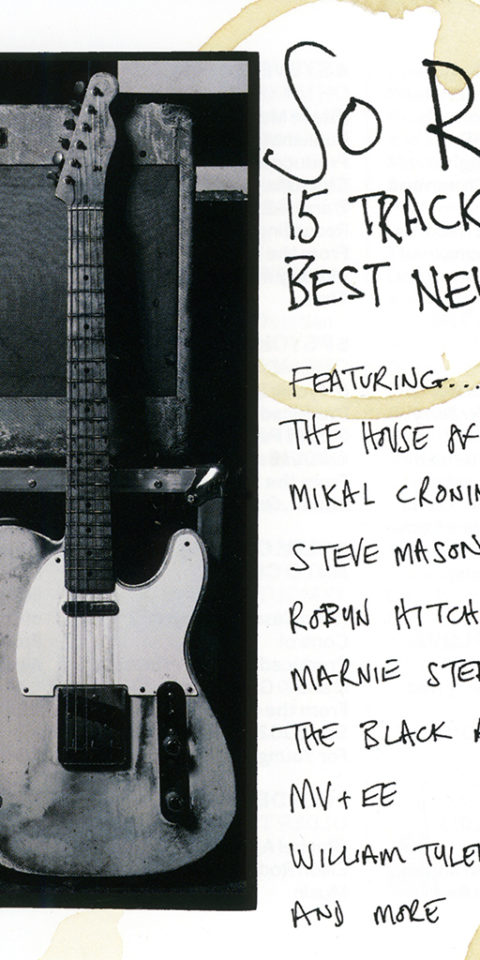 SO R
15 TRACK
BEST NEW
FEATURING...
THE HOUSE OF
MIKAL CRONIN
STEVE MASON
ROBYN HITCH
MARNIE STE
THE BLACK A
MV + EE
WILLIAM TYLE
AND MORE